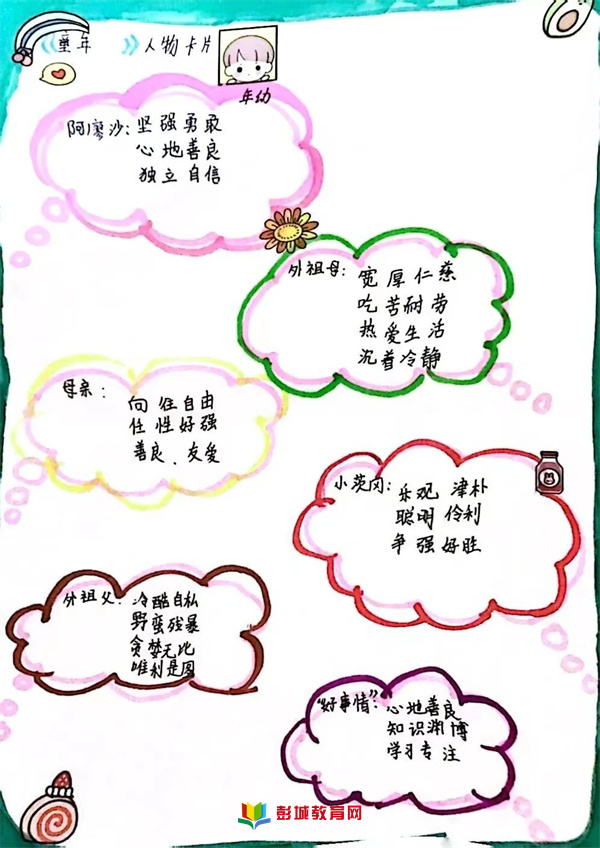 《童年》人物卡片
年幼
阿廖沙：坚强勇敢
心地善良
独立自信
外祖母：宽厚仁慈
吃苦耐劳
热爱生活
沉着冷静
母亲：
向往自由
任性好强
善良、友爱
小茨冈：乐观 津朴
聪明 伶利
争强好胜
外祖父：冷酷自私
野蛮残暴
贪婪无比
唯利是图
“好事情”：心地善良
知识渊博
学习专注
彭城教育网